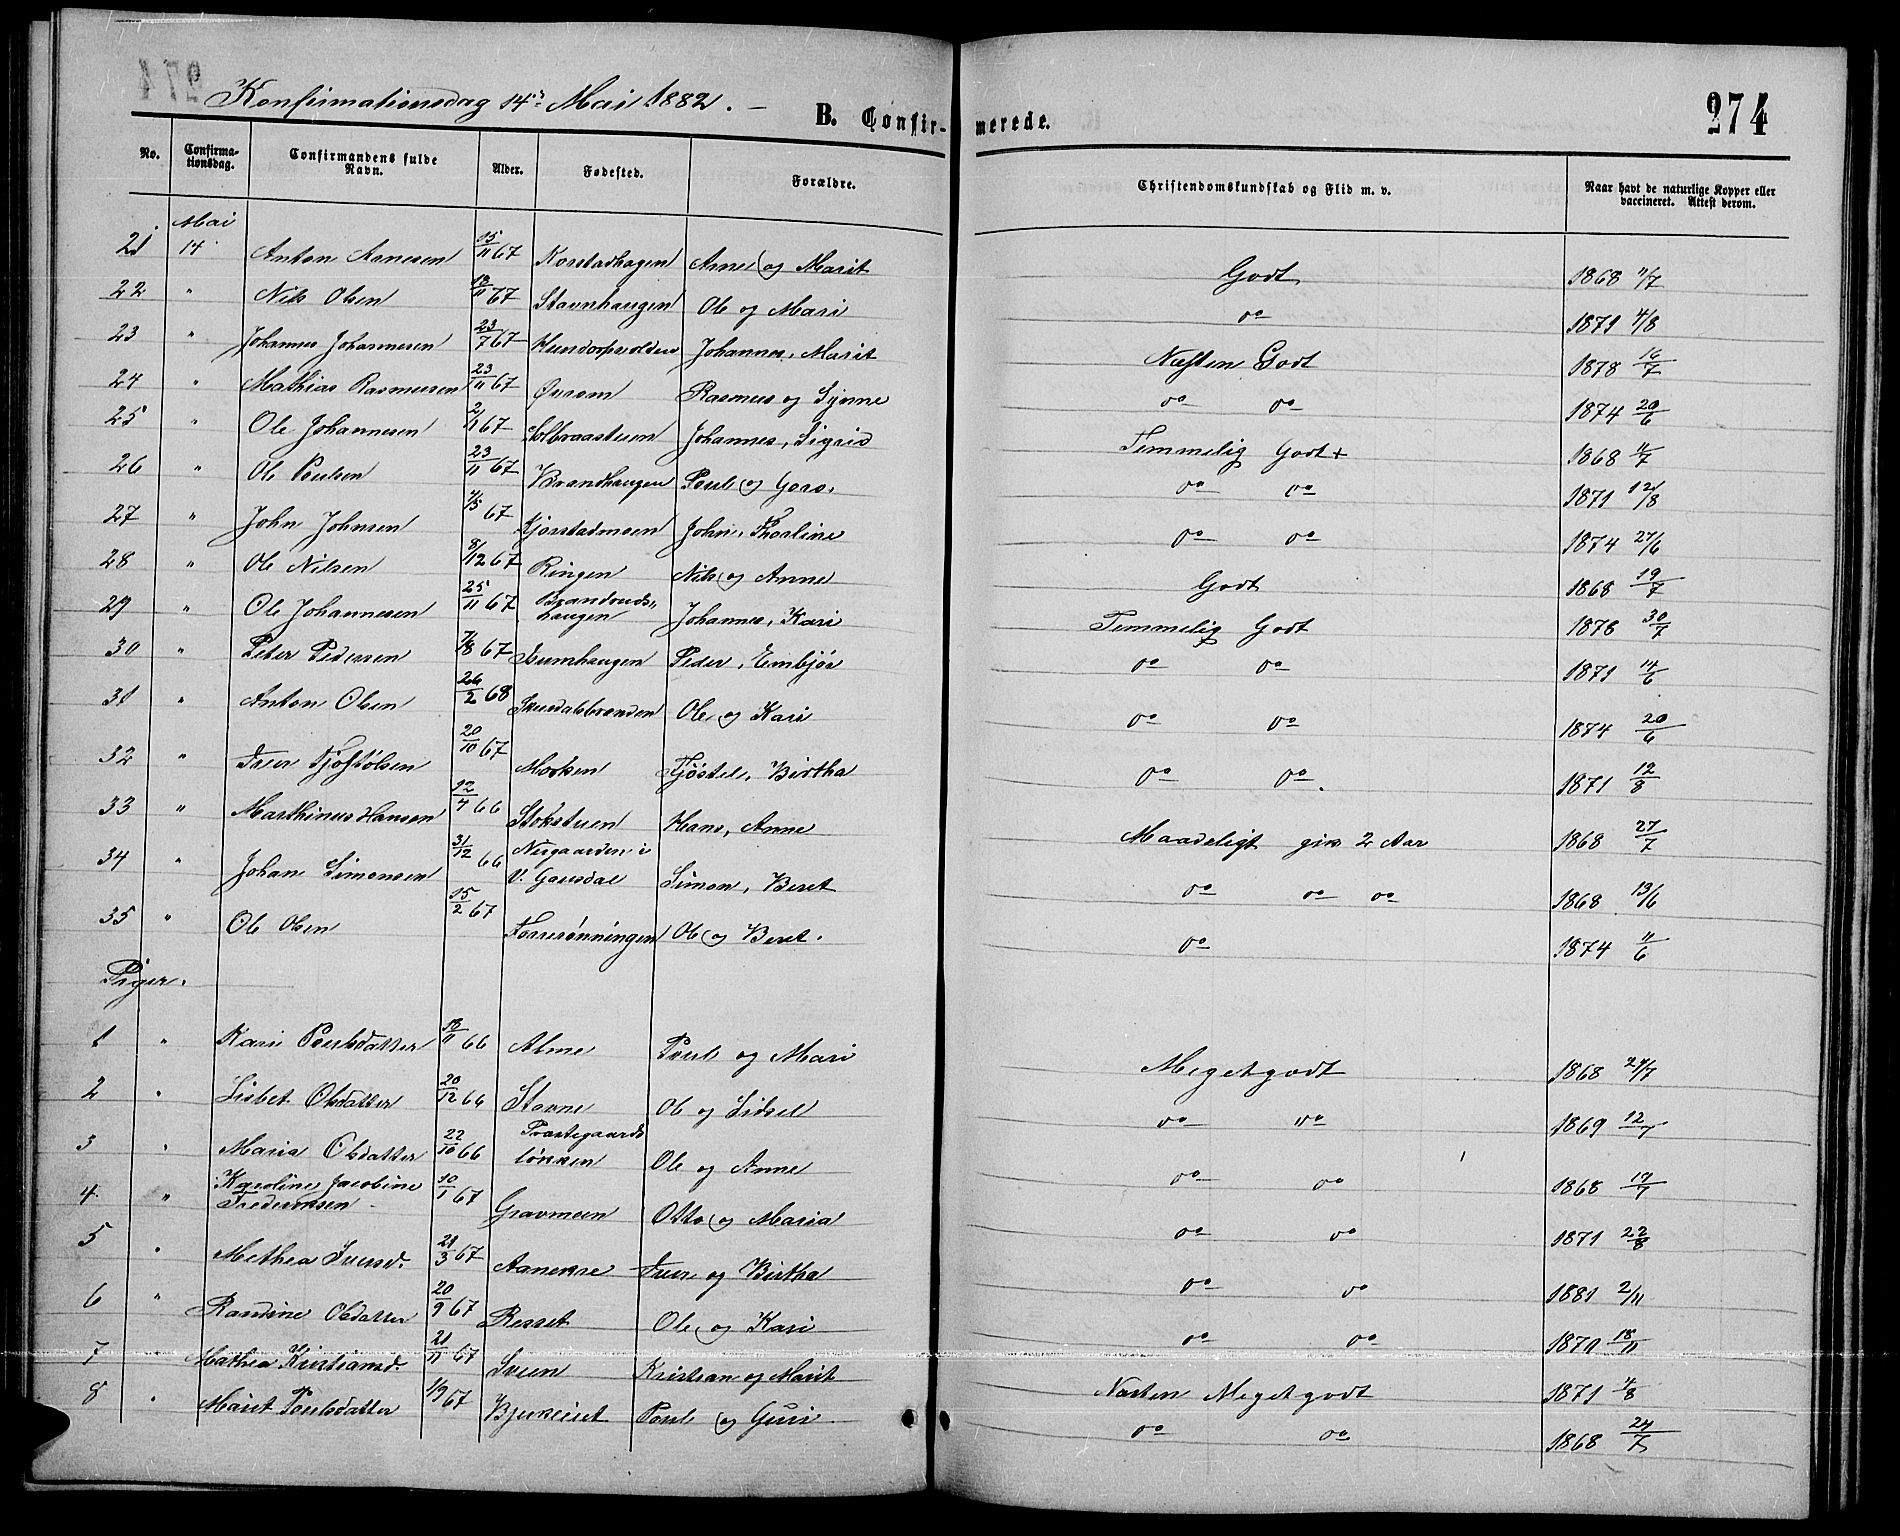 274
Konfirmationsdag 14de Mai 1882. –
B. Confir-merede.
No. Confirma-tionsdag. Confirmandens fulde Navn. Alder. Fødested. Forældre. Christendomskundskab og Flid m. v. Naar havt de naturlige Kopper eller vaccineret. Attest derom.
Mai
21 14 Anton Arnesen 15/11 67 Korstadhagen Arne og Marit Godt 1868 11/7
22 " Nils Olsen 18/11 67 Stavnhaugen Ole og Mari do 1871 4/8
23 " Johannes Johannesen 23/7 67 Hundorpvolden Johannes, Marit Næsten Godt 1878 16/7
24 " Mathias Rasmussen 23/11 67 Øverom Rasmus og Synne do do 1874 20/6
25 " Ole Johannesen 2/1 67 Holbraastuen Johannes, Sigrid Temmelig Godt + 1868 11/7
26 " Ole Poulsen 23/11 67 Brandhaugen Poul og Goro. do do 1871 12/8
27 " John Johnsen 4/5 67 Kjorstadmoen John, Thorline do do 1874 27/6
28 " Ole Nilsen 8/12 67 Ringen Nils og Anne Godt 1868 19/7
29 " Ole Johannesen 25/11 67 Brandvuds-haugen Johannes, Kari Temmelig Godt 1878 30/7
30 " Peter Pedersen 7/8 67 haugen Peder, Embjør do do 1871 14/6
31 " Anton Olsen 26/2 68 Skurdalsbrenden Ole og Kari do do 1874 20/6
32 " Iver Tjøstolsen 20/10 67 Morken Tjøstel, Birtha do do. 1871 12/8
33 " Marthinus Hansen 12/4 66 Stokstuen Hans, Anne Maadeligt gik 2 Aar 1868 27/7
34 " Johan Simensen 31/12 66 Nergaarden i V. Gausdal Simon, Beret do do do 1868 13/6
35 " Ole Olsen 15/2 67 Forrrønningen Ole og Beret. do 1874 11/6
Piger.
1 " Kari Poulsdatter 18/11 66 Alme Poul og Mari Megetgodt 1868 27/7
2 " Lisbet Olsdatter 20/12 66 Stavne Ole og Sidsel do do 1869 12/7
3 " Maria Olsdatter 22/10 66 Præstegaards løkken Ole og Anne do do 1868 19/7
4 " Karoline Jacobine Frederiksen 10/1 67 Gravmoen Otto og Maria do do 1871 22/8
5 " Methea Iversd. 21/3 67 Aanekre Iver og Birtha do do 1881 2/11
6 " Randine Olsdatter 20/9 67 Resset Ole og Kari do do 1870 18/11
7 " Mathea Kristiansd. 21/11 67 Sveen Kristian og Marit Næsten Megetgodt 1871 4/8
8 " Marit Poulsdatter 1/9 67 Poul og Guri do do 1868 24/7